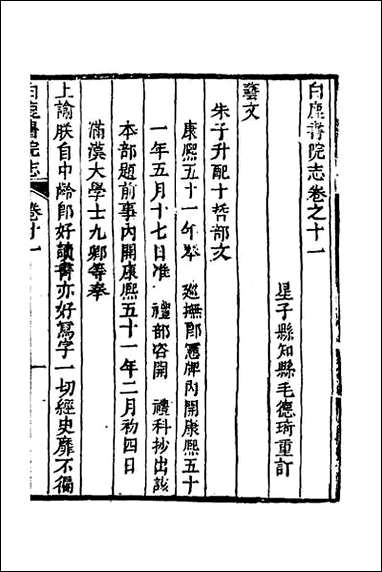 白鹿書院志卷之十一
星子縣知縣毛德琦重訂
藝文
朱子升配十哲部文
康熙五十一年奉　巡撫郎憲牌內開康熙五十
一年五月十七日准　禮部咨開　禮科抄出該
本部題前事內開康熙五十一年二月初四日
滿漢大學士九卿等奉
上諭朕自中齡即好讀書亦好寫字一切經史靡不徧
白鹿書院志　卷十一　一